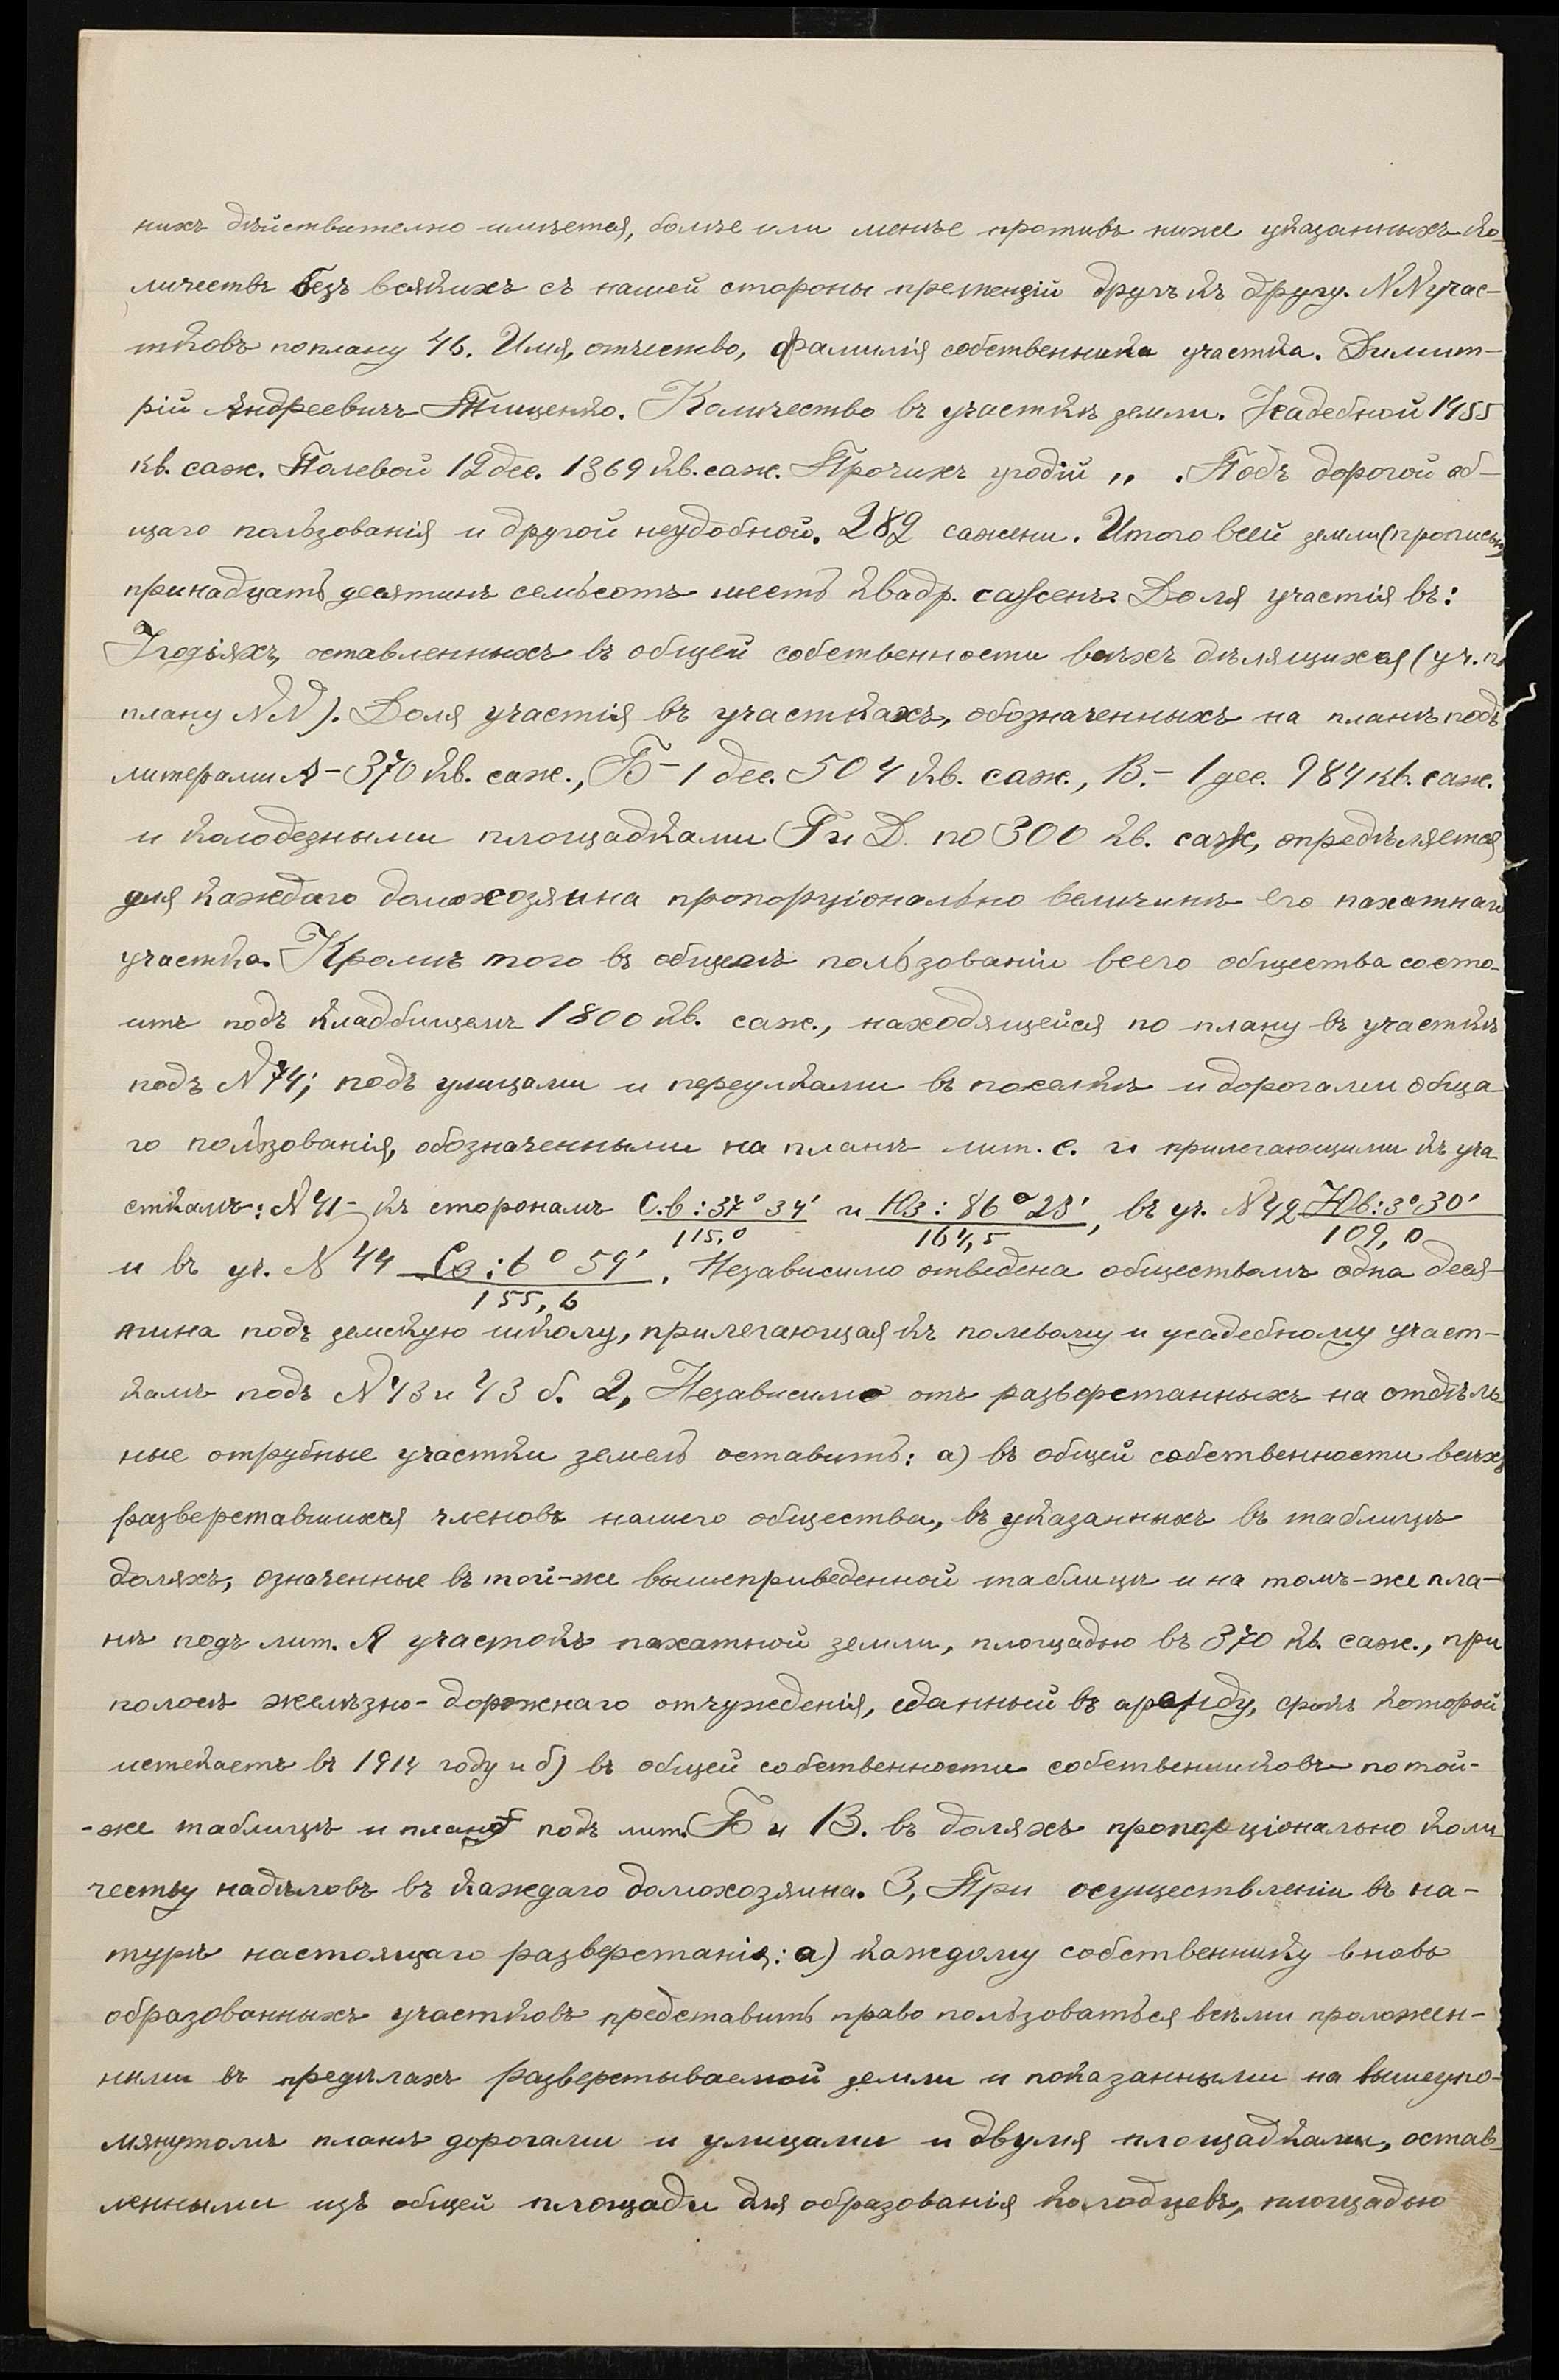 нихъ дѣйствително имѣется, болѣе или менѣе противъ ниже указанныхъ ко-
личествъ безъ всякихъ съ нашей стороны претензій другъ къ другу. NN учас-
тковъ по плану 46. Имя, отчество, фамилія собственника участка. Димит-
рій Андреевичъ Тищенко. Количество въ участкѣ земли. Усадебной 1455
кв. саж. Полевой 12 дес. 1369 кв. саж. Прочихъ угодій „ . Подъ дорогой об-
щаго пользованія и другой неудобной. 282 сажени. Итого всей земли (прописью)
тринадцать десятинъ семьсотъ шесть квадр. саженъ. Доля участія въ:
Угодіяхъ, оставленныхъ въ общей собственности всѣхъ дѣлящихся (уч. по
плану NN). Доля участія въ участкахъ, обозначенныхъ на планѣ подъ
литерами А - 370 кв. саж., Б - 1 дес. 504 кв. саж., В. - 1 дес. 984 кв. саж.
и колодезными площадками Г и Д. по 300 кв. саж, опредѣляется
для каждаго домохозяина пропорціонально величинѣ его пахатнаго
участка. Кромѣ того въ общемъ пользованіи всего общества состо-
итъ подъ кладбищемъ 1800 кв. саж., находящейся по плану въ участкѣ
подъ N 74; подъ улицами и переулками въ поселкѣ и дорогами обща-
го пользованія, обозначенными на планѣ лит. с. и прилегающими къ уча
сткамъ: N 41 - къ сторонамъ С.в : 37° 34' / 115,0 и Юз : 86° 23' / 164,5, въ уч. N 42 Юв : 3° 30' / 109,0
и въ уч. N 44 Св : 6° 59' / 155,6. Независимо отведена обществомъ одна деся-
тина подъ земскую школу, прилегающая къ полевому и усадебному участ-
камъ подъ N 43 и 43 б. 2, Независимо отъ разверстанныхъ на отдѣль
ные отрубные участки земель оставить: а) въ общей собственности всѣхъ
разверставшихся членовъ нашего общества, въ указанныхъ въ таблицѣ
доляхъ, означенные въ той-же вышеприведенной таблицѣ и на томъ-же пла-
нѣ подъ лит. А участокъ пахатной земли, площадью въ 370 кв. саж., при
полосѣ желѣзно-дорожнаго отчужденія, сданный въ аренду, срокъ которой
истекаетъ въ 1914 году и б) въ общей собственности собственниковъ по той-
-же таблицѣ и планѣ подъ лит. Б и В. въ доляхъ пропорціонально коли
честву надѣловъ въ каждаго домохозяина. 3, При осуществленіи въ на-
турѣ настоящаго разверстанія: а) каждому собственнику вновь
образованныхъ участковъ представить право пользоваться всѣми проложен-
ными въ предѣлахъ разверстываемой земли и показанными на вышеупо-
мянутомъ планѣ дорогами и улицами и двумя площадками, остав-
ленными изъ общей площади для образованія колодцевъ, площадью